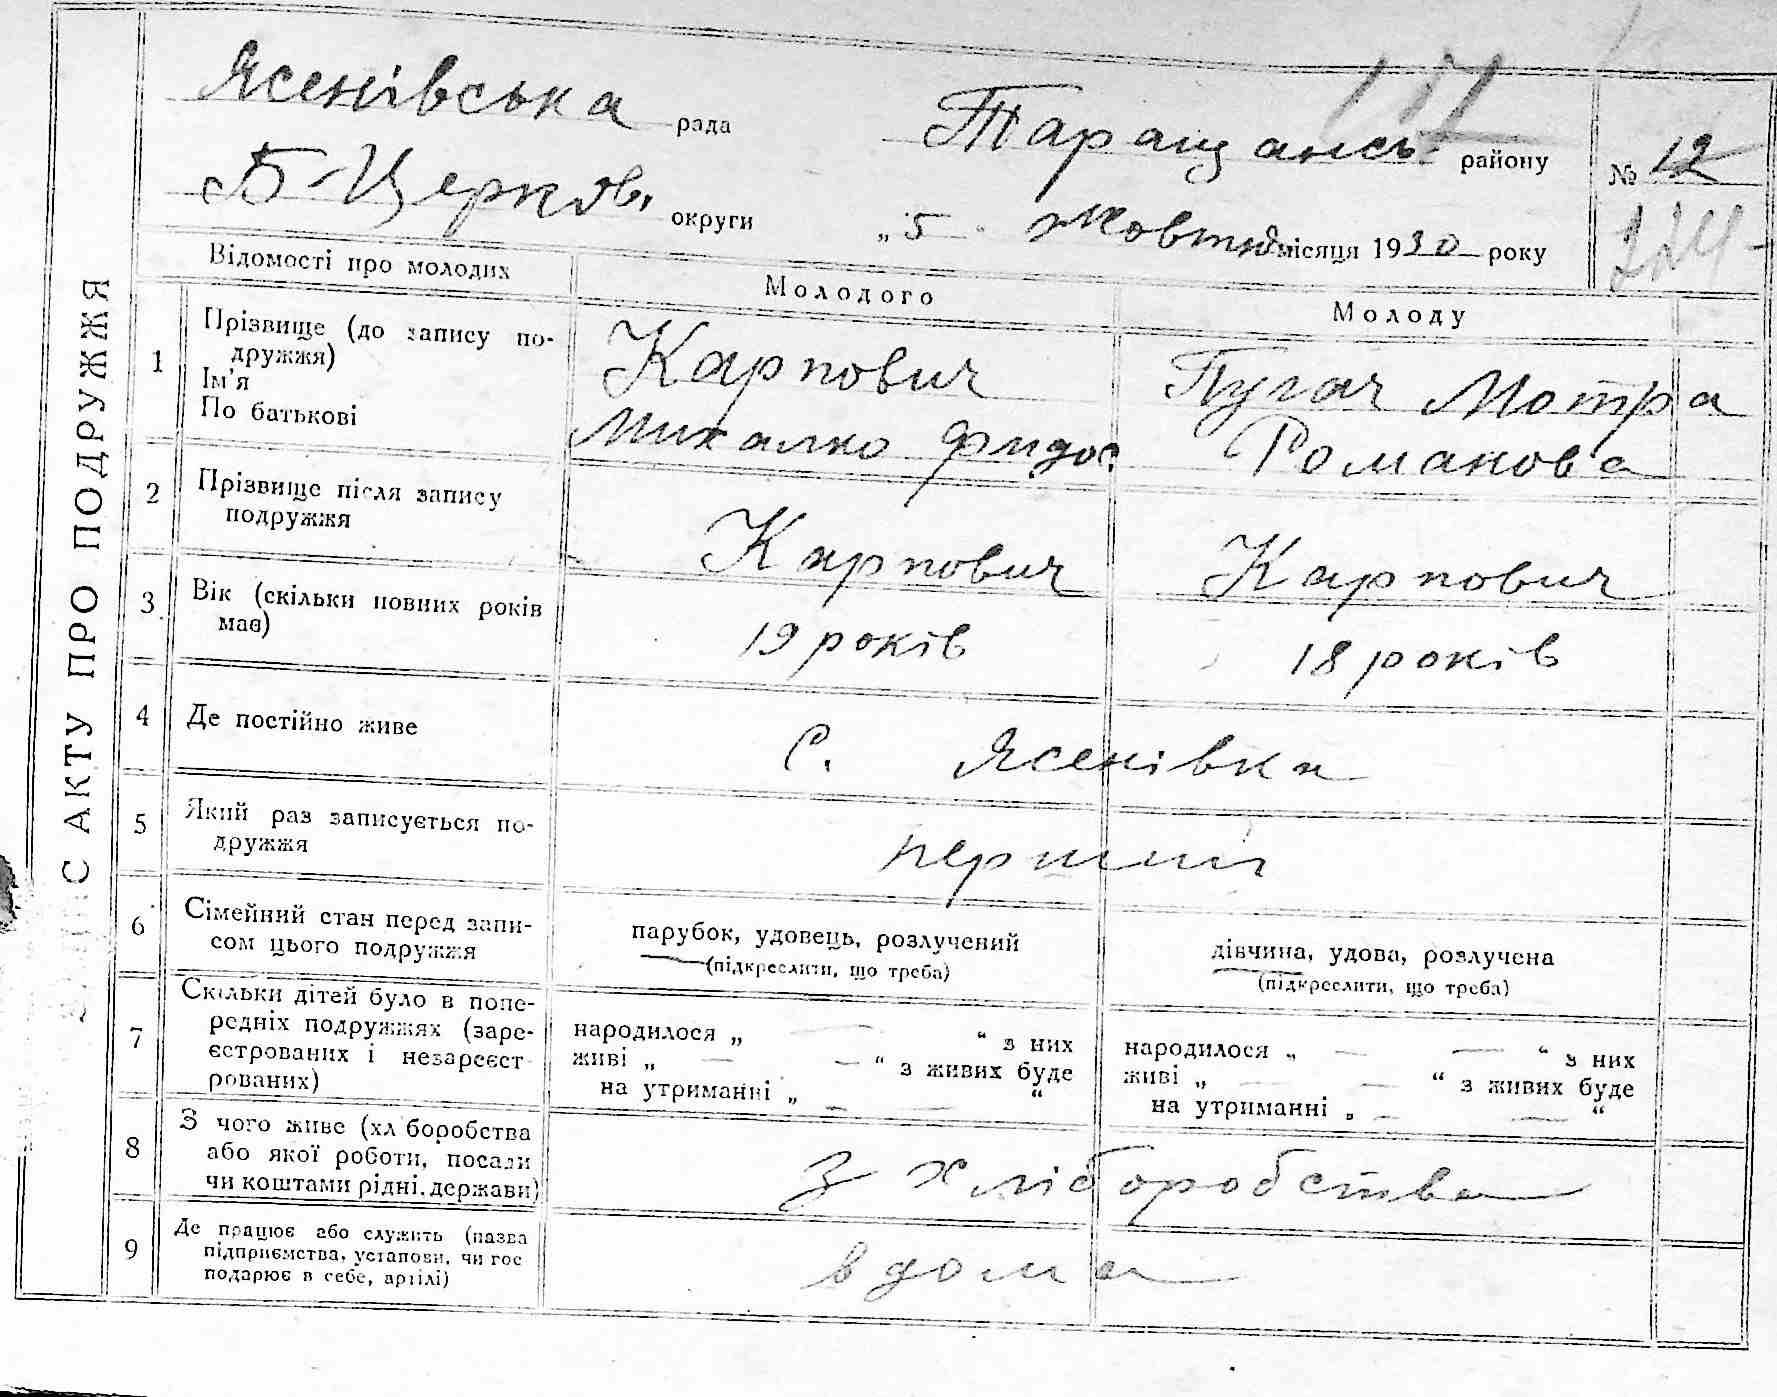 171
Ясенівська рада Таращанськ. району № 12
Б-Церков. округи „5" жовтня місяця 1930 року
224
С АКТУ ПРО ПОДРУЖЖЯ
Відомості про молодих Молодого Молоду
1 Прізвище (до запису по-
дружжя)
Ім'я
По батькові
Карпович
Михалко Фидос.
Пугач Мотра
Романова
2 Прізвище після запису
подружжя
Карпович Карпович
3 Вік (скільки повних років
має)
19 років 18 років
4 Де постійно живе
с. Ясенівка
5 Який раз записується по-
дружжя
перший
6 Сімейний стан перед запи-
сом цього подружжя
парубок, удовець, розлучений
(підкреслити, що треба)
дівчина, удова, розлучена
(підкреслити, що треба)
7 Скільки дітей було в попе-
редніх подружжях (заре-
єстрованих і незареєст-
рованих)
народилося „ — “ з них
живі „ — — “ з живих буде
на утриманні „ — — “
народилося „ — — “ з них
живі „ — — “ з живих буде
на утриманні „ — — “
8 З чого живе (хл боробства
або якої роботи, посади
чи коштами рідні. держави)
З хліборобства
9 Де працює або служить (назва
підприємства, установи, чи гос
подарює в себе, артілі)
вдома